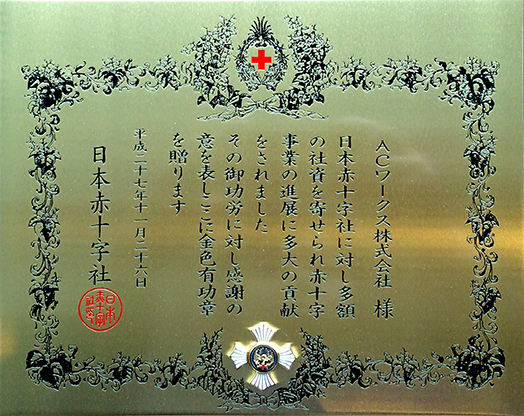 ACワークス株式会社 様
日本赤十字社に対し多額
の社資を寄せられ赤十字
事業の進展に多大の貢献
をされました
その御功労に対し感謝の
意を表しここに金色有功章
を贈ります
平成二十七年十一月二十六日
日本赤十字社